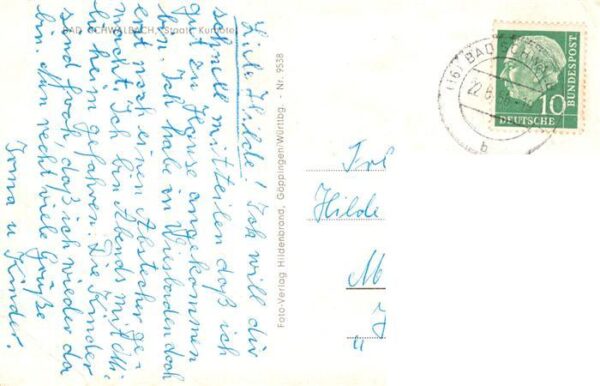 BAD SCHWALBACH, Staatl.
Liebe Hilde! Ich will dir
schnell mitteilen daß ich
gut zu Hause angekommen
bin. Ich habe in Wiesbaden doch
erst noch einen Abstecher ge-
macht. Ich bin Abends mit
heim gefahren. Die Kinder
sind froh, daß ich wieder da
bin. Allen recht viele Grüße
Irma u
Kinder.
Foto-Verlag Hildenbrand, Göppingen/Württbg. - Nr. 9538
(16) BAD
22.6.
b
10
DEUTSCHE
BUNDESPOST
Frl
Hilde
M
J
"